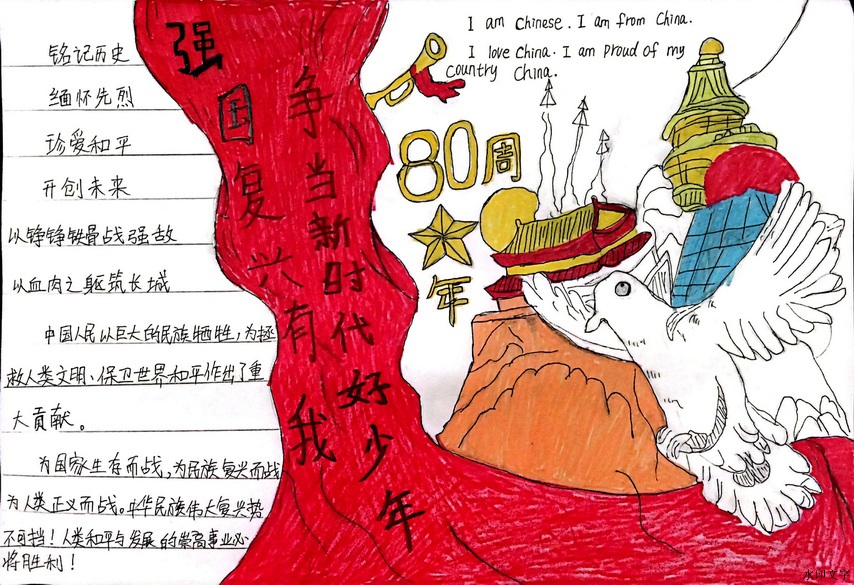 铭记历史
缅怀先烈
珍爱和平
开创未来
以铮铮铁骨战强敌
以血肉之躯筑长城
中国人民以巨大的民族牺牲,为拯
救人类文明、保卫世界和平作出了重
大贡献。
为国家生存而战,为民族复兴而战
为人类正义而战。中华民族伟大复兴势
不可挡!人类和平与发展的崇高事业必
将胜利!
强国复兴有我
争当新时代好少年
I am Chinese. I am from China.
I love China. I am proud of my
country China.
80周
年